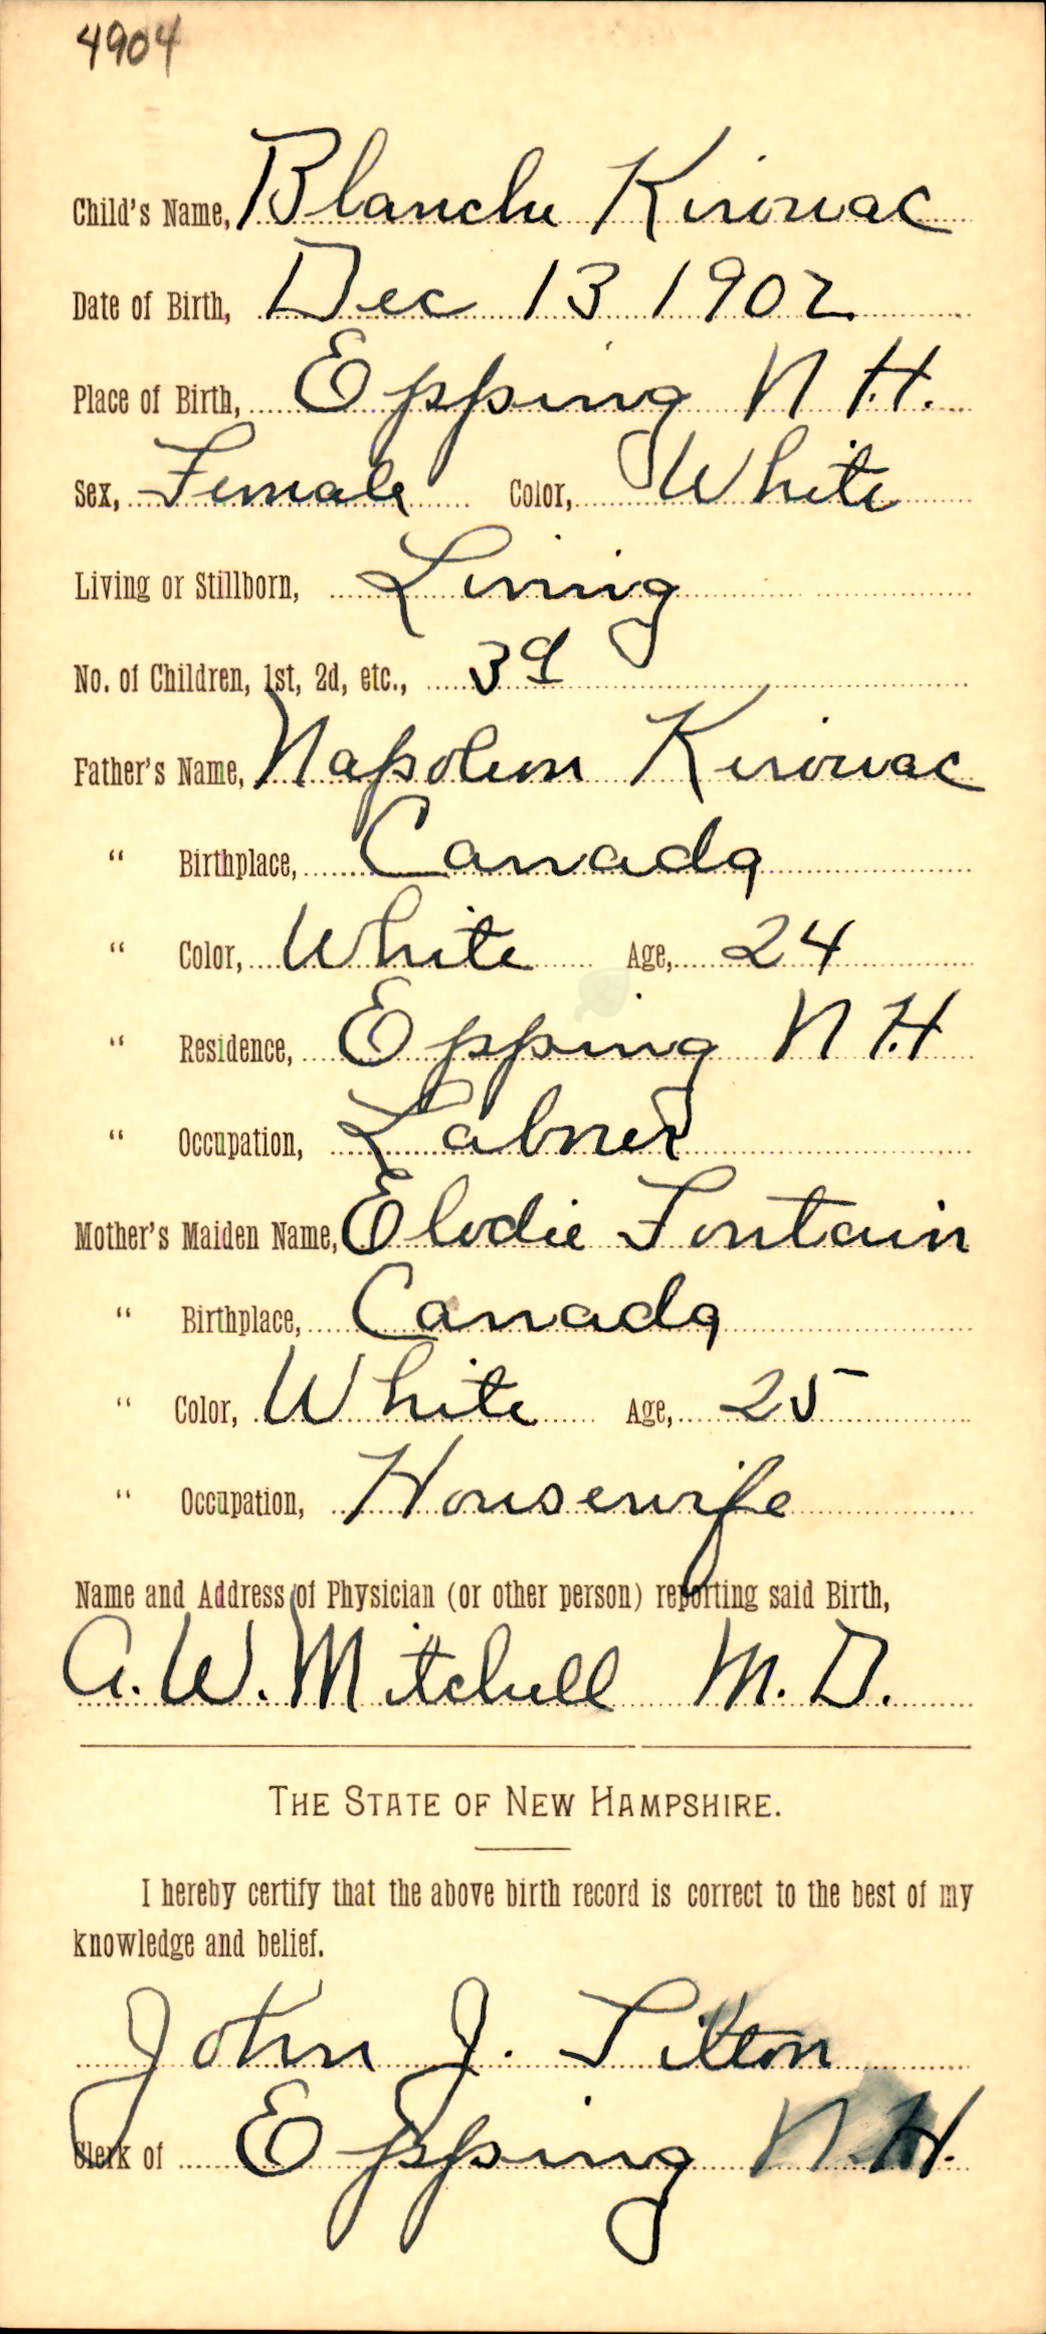 4904
Child's Name, Blanche Kirouac
Date of Birth, Dec 13 1902
Place of Birth, Epping N.H.
Sex, Female Color, White
Living or Stillborn, Living
No. of Children, 1st, 2d, etc., 3d
Father's Name, Napoleon Kirouac
" Birthplace, Canada
" Color, White Age, 24
" Residence, Epping N.H
" Occupation, Laborer
Mother's Maiden Name, Elodie Fontain
" Birthplace, Canada
" Color, White Age, 25
" Occupation, Housewife
Name and Address of Physician (or other person) reporting said Birth,
A. W. Mitchell M. D.
THE STATE OF NEW HAMPSHIRE.
I hereby certify that the above birth record is correct to the best of my
knowledge and belief.
John J. Tilton
Clerk of Epping N.H.